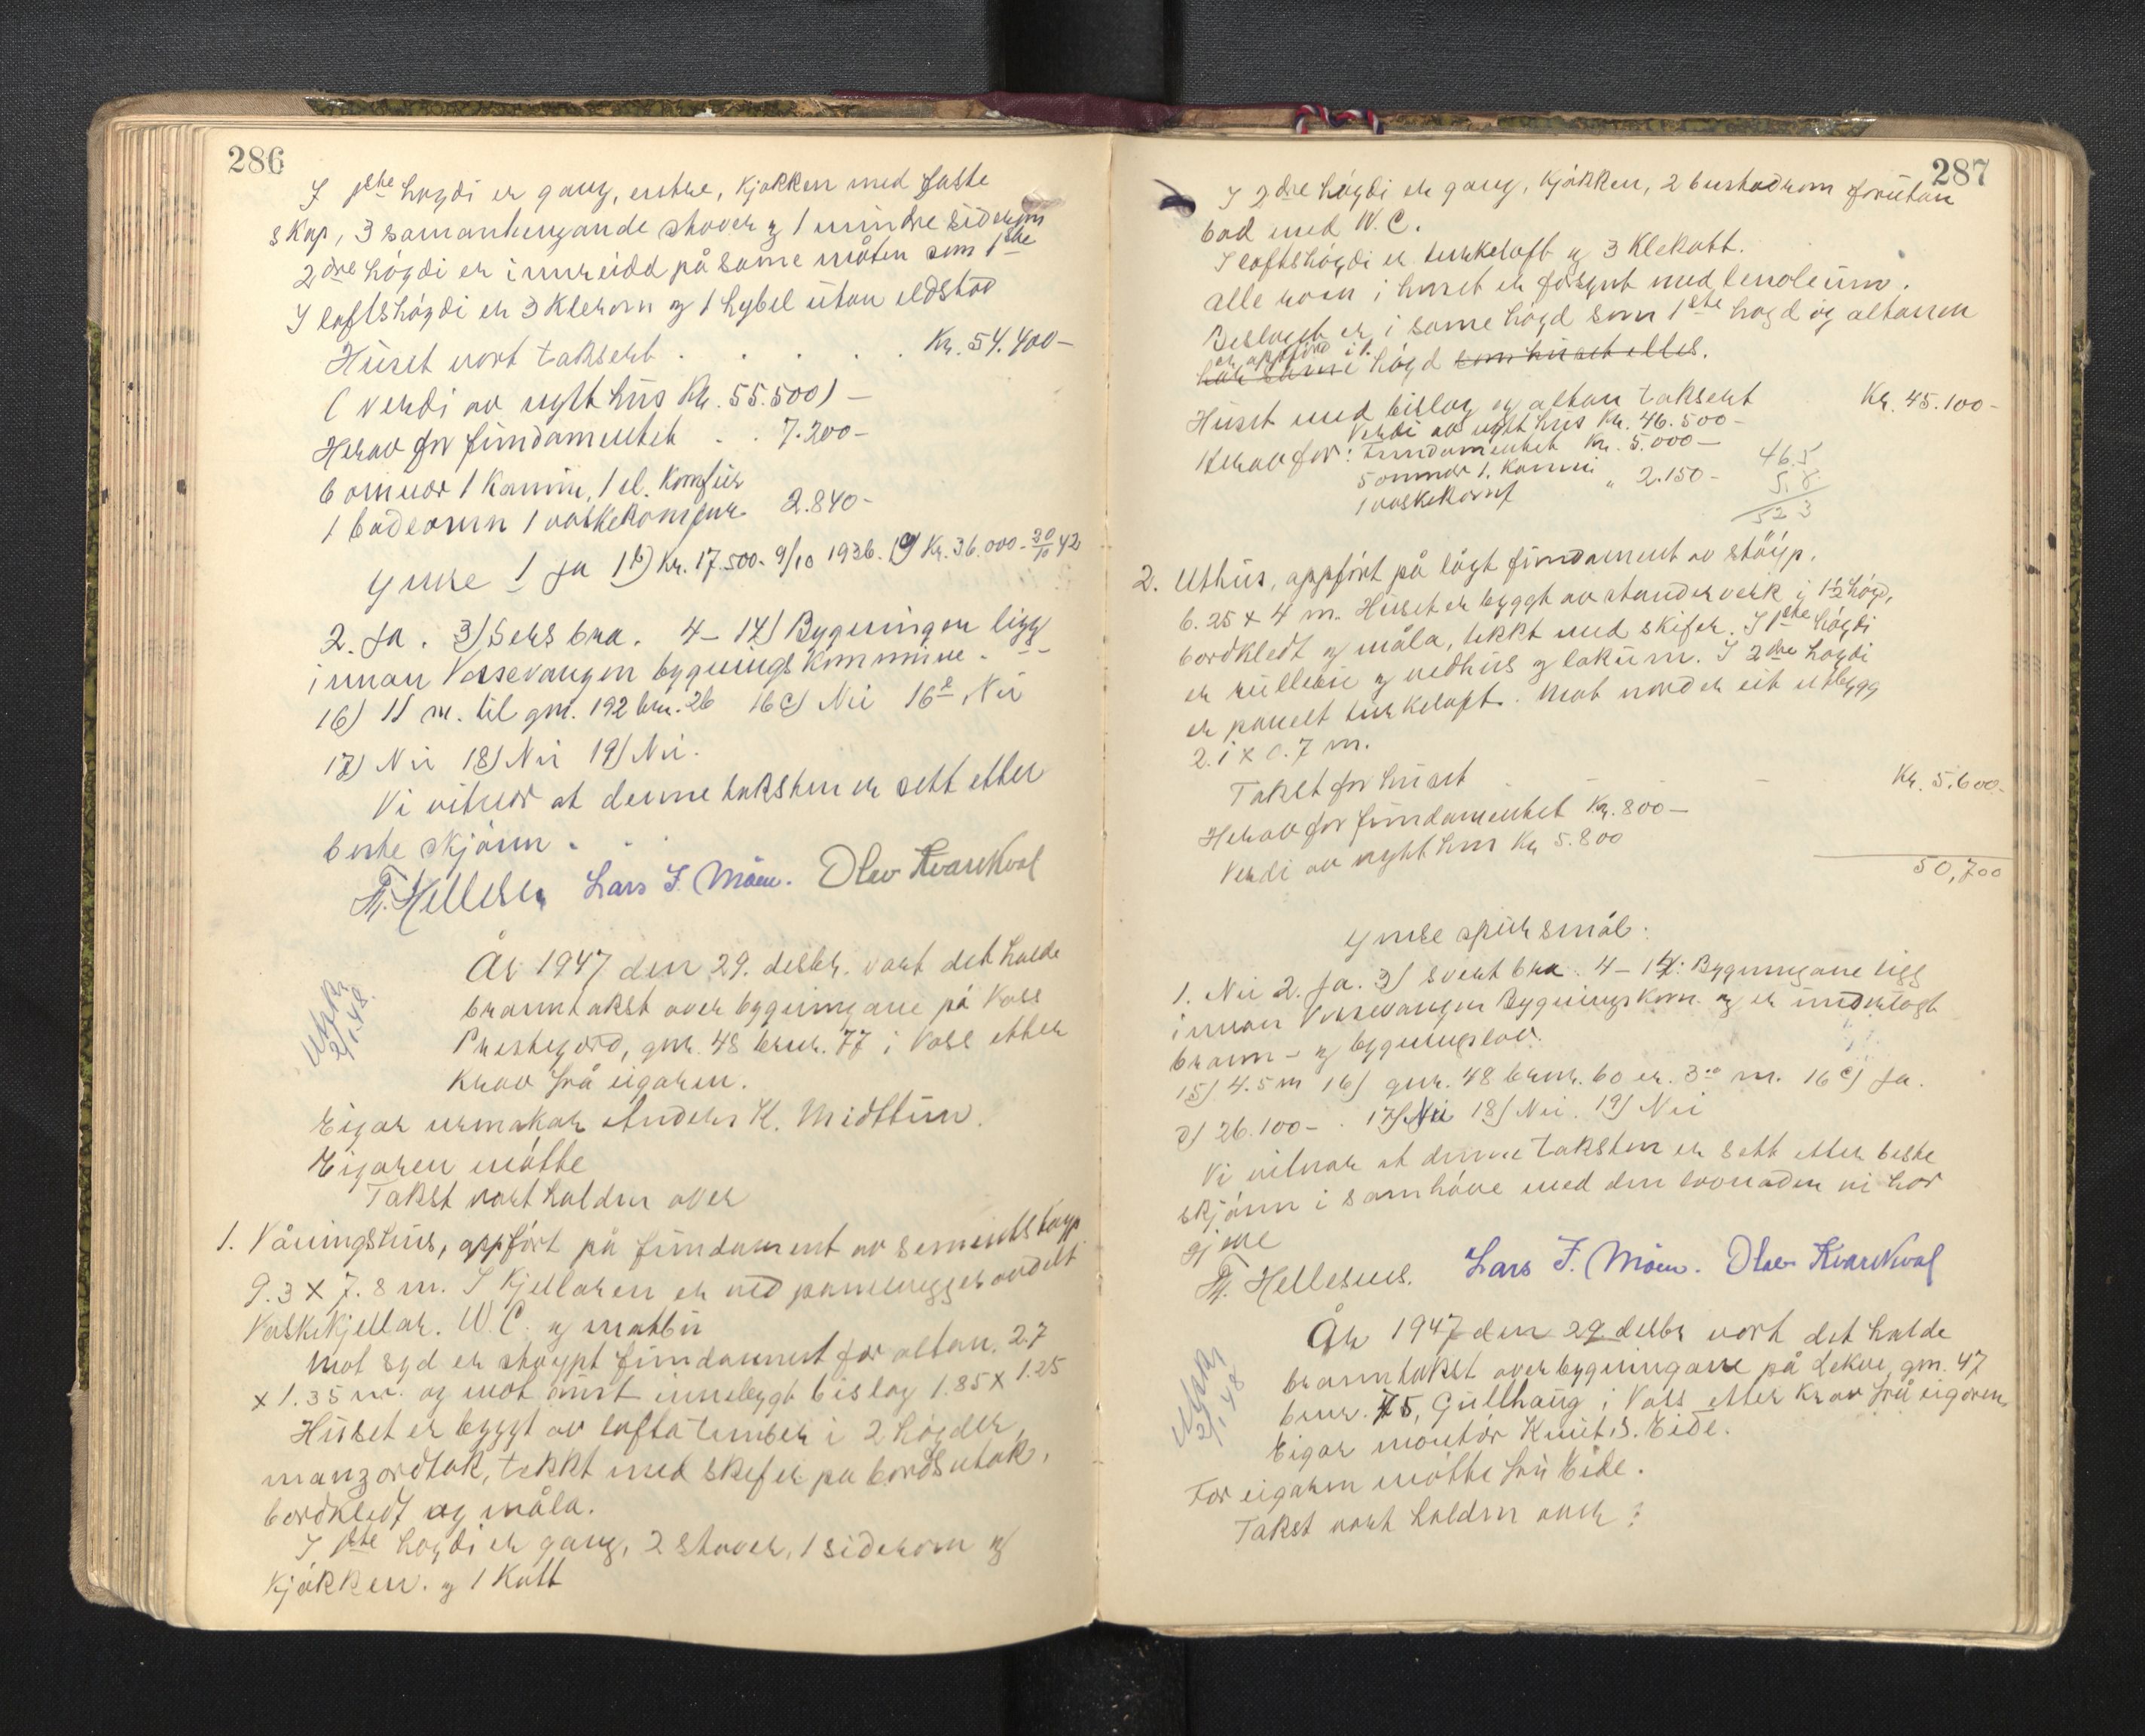 286
I 1ste høgdi er gang, entre, kjøkken med faste
skap, 3 samanhengande stover og 1 mindre siderom
2dre høgdi er innreidd på same måten som 1ste
I loftshøgdi er 3 klerom og 1 hybel utan eldstad
Huset vart taksert . . . . . Kr. 54.400-
( Verdi av nytt hus Kr. 55.500) -
Herav for fundamentet . . 7.200-
6 omnar 1 Kamin, 1 el. Komfur
1 badeomn 1 vaskekomfur 2.840-
Ymse 1 Ja 1b) Kr. 17.500- 9/10 1936. 1c) Kr. 36.000- 30/10 42
2. Ja. 3) Sers bra. 4-14) Bygningen ligg
innan Vossevangen bygningskommune.
16) 11 m. til gnr. 192 bnr. 26 16c) Nei 16d Nei
17) Nei 18) Nei 19) Nei.
Vi vitnar at denne taksten er sett etter
beste skjønn.
Th. Hellesen Lars J. Møen. Olav Kvarekval
År 1947 den 29. desbr. vart det halde
branntakst over bygningane på Voss
Prestegard, gnr. 48 bnr. 77 i Voss etter
krav frå eigaren.
Utskr.
2/1.48.
Eigar urmakar Anders K. Midttun.
Eigaren møtte
Takst vart halden over
1. Våningshus, oppført på fundament av sementstøyp
9.3 x 7.8 m. I kjellaren er ved panelvegger avdelt
Vaskekjellar. W.C. og matbu
Mot syd er støypt fundament for altan, 2.7
x 1.35 m. og mot aust innebygt bislag 1.85 x 1.25
Huset er bygt av lafta timber i 2 høgder,
manzardtak, tekkt med skifer på bordsutak,
bordkledt og måla.
I 1ste høgdi er gang, 2 stover, 1 siderom og
kjøkken. og 1 Kott
287
I 2dre høgdi er gang, kjøkken, 2 burstadrom forutan
bad med W.C.
I loftshøgdi er turkeloft og 3 Klekott.
Alle rom i huset er forsynt med lenoleum.
Beslaget er i same høgd som 1ste høgd og altanen
er oppførd i 1.
har same høgd som huset elles.
Huset med bislag og altan taksert Kr. 45.100-
Verdi av nytt hus Kr. 46.500-
Herav for: Fundamentet Kr. 5.000-
5 omnar 1. Kamin
1 vaskekomf " 2.150-
46.5
5.8
52 3
2. Uthus, oppført på lågt fundament av støyp.
6.25 x 4 m. Huset er byggt av standerverk i 1½ høgd,
bordkledt og måla, tekkt med skifer. I 1ste høgdi
er rullebu og vedhus og lokum. I 2dre høgdi
er panelt turkeloft. Mot nord er eit utbygg
2.1 x 0.7 m.
Takst for huset Kr. 5.600-
Herav for fundamentet Kr. 800-
Verdi av nytt hus Kr 5.800
50,700
Ymse spursmål:
1. Nei 2. Ja. 3) Svert bra. 4-14: Bygningane ligg
innan Vossevangen Bygningskom. og er underlagt
brann- og bygningslov.
15) 4.5 m 16) gnr. 48 bnr. 60 er. 3.00 m. 16c) Ja.
d) 26.100- . 17) Nei 18) Nei. 19) Nei
Vi vitnar at denne taksten er sett etter beste
skjønn i samhøve med den lovnaden vi har
gjeve
Th. Hellesnes. Lars J. Møen. Olav Kvarekval
År 1947 den 29 desbr vart det halde
branntakst over bygningane på Lekve, gnr. 47
bnr. 75, Gullhaug i Voss etter krav frå eigaren,
Utskr
2/1 48
Eigar montør Knut S. Eide.
For eigaren møtte fru Eide.
Takst vart halden over: